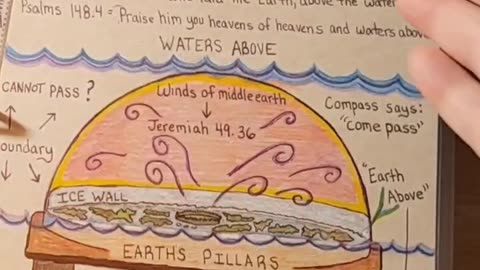 the Earth, above the water
Psalms 148.4 = Praise him you heavens of heavens and waters above
WATERS ABOVE
CANNOT PASS ?
Winds of middle earth
Jeremiah 49.36
Compass says:
"Come pass"
oundary
"Earth
Above"
ICE WALL
EARTHS PILLARS